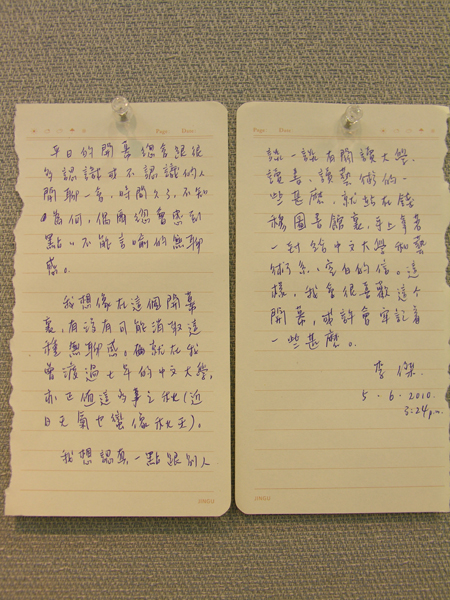 Page: Date:
平日的開幕總會跟很
多認識或不認識的人
閒聊一會,時間久了,不知
為何,偶爾總會感到
點點不能言喻的無聊
感。
我想像在這個開幕
裏,有沒有可能消取這
種無聊感。而就在我
曾渡過七年的中文大學,
亦正值這多事之秋(近
日天氣也蠻像秋天)。
我想認真一點跟別人
Page: Date:
談一談有關讀大學、
讀書、讀藝術的一
些甚麼,就站在錢
穆圖書館裏,手上拿著
一封給中文大學和藝
術系、空白的信。這
樣,我會很喜歡這個
開幕,或許會牢記着
一些甚麼。
李傑.
5.6.2010.
3:24pm.